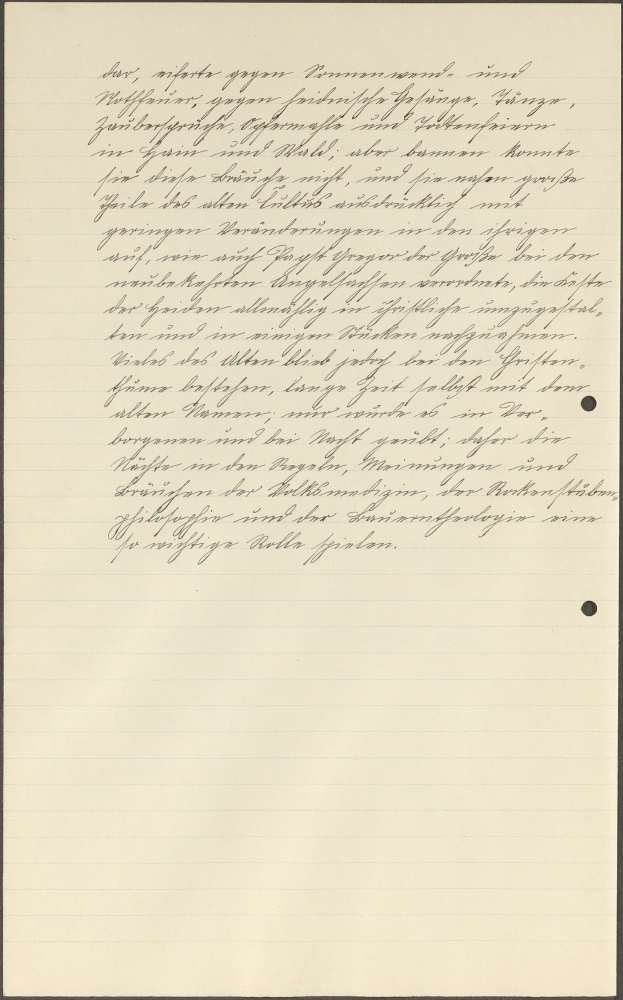 dar, eiferte gegen Sonnenwend- und
Nothfeuer, gegen heidnische Gesänge, Tänze,
Zaubersprüche, Opfermahle und Todtenfeiern
in Hain und Wald; aber bannen konnte
sie diese Bräuche nicht, und sie nahm große
Theile des alten Cultus ausdrücklich mit
geringen Veränderungen in den ihrigen
auf, wie auch Papst Gregor der Große bei den
neubekehrten Angelsachsen verordnete, die Feste
der Heiden allmählig in christliche umzugestal-
ten und in einigen Stücken nachzuahmen.
Vieles des Alten blieb jedoch bei den Christen-
thume bestehen, lange Zeit selbst mit dem
alten Namen; nur wurde es in Ver-
borgenen und bei Nacht geübt; daher die
Nächte in den Regeln, Meinungen und
Bräuchen der Volksmedizin, der Rockenstuben-
philosophie und der Bauerntheologie eine
so wichtige Rolle spielen.